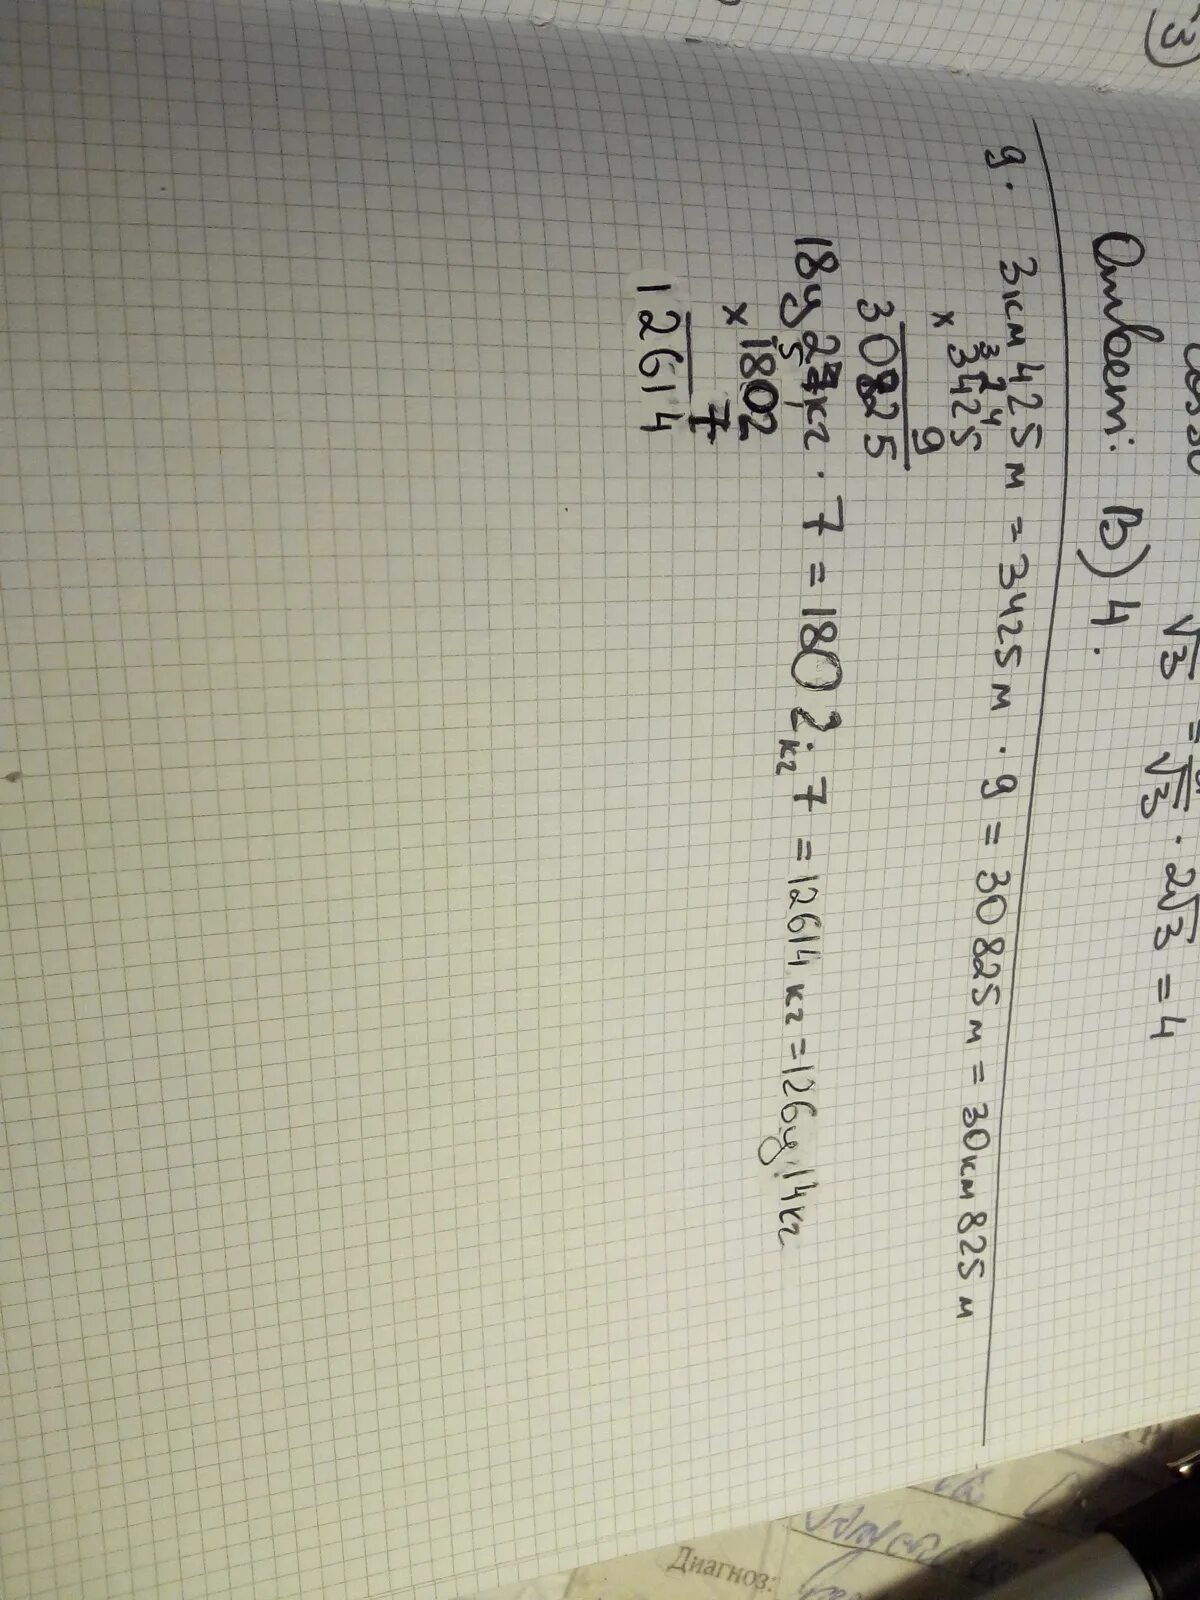 3)
√3 = √3 · 2√3 = 4
Ответ: В) 4.
9. 3км 425 м = 3425 м · 9 = 30825 м = 30км 825 м
324
× 3425
9
30825
18ц 2кг · 7 = 1802 кг · 7 = 12614 кг = 126ц 14кг
5 1
× 1802
7
12614
Диагноз: